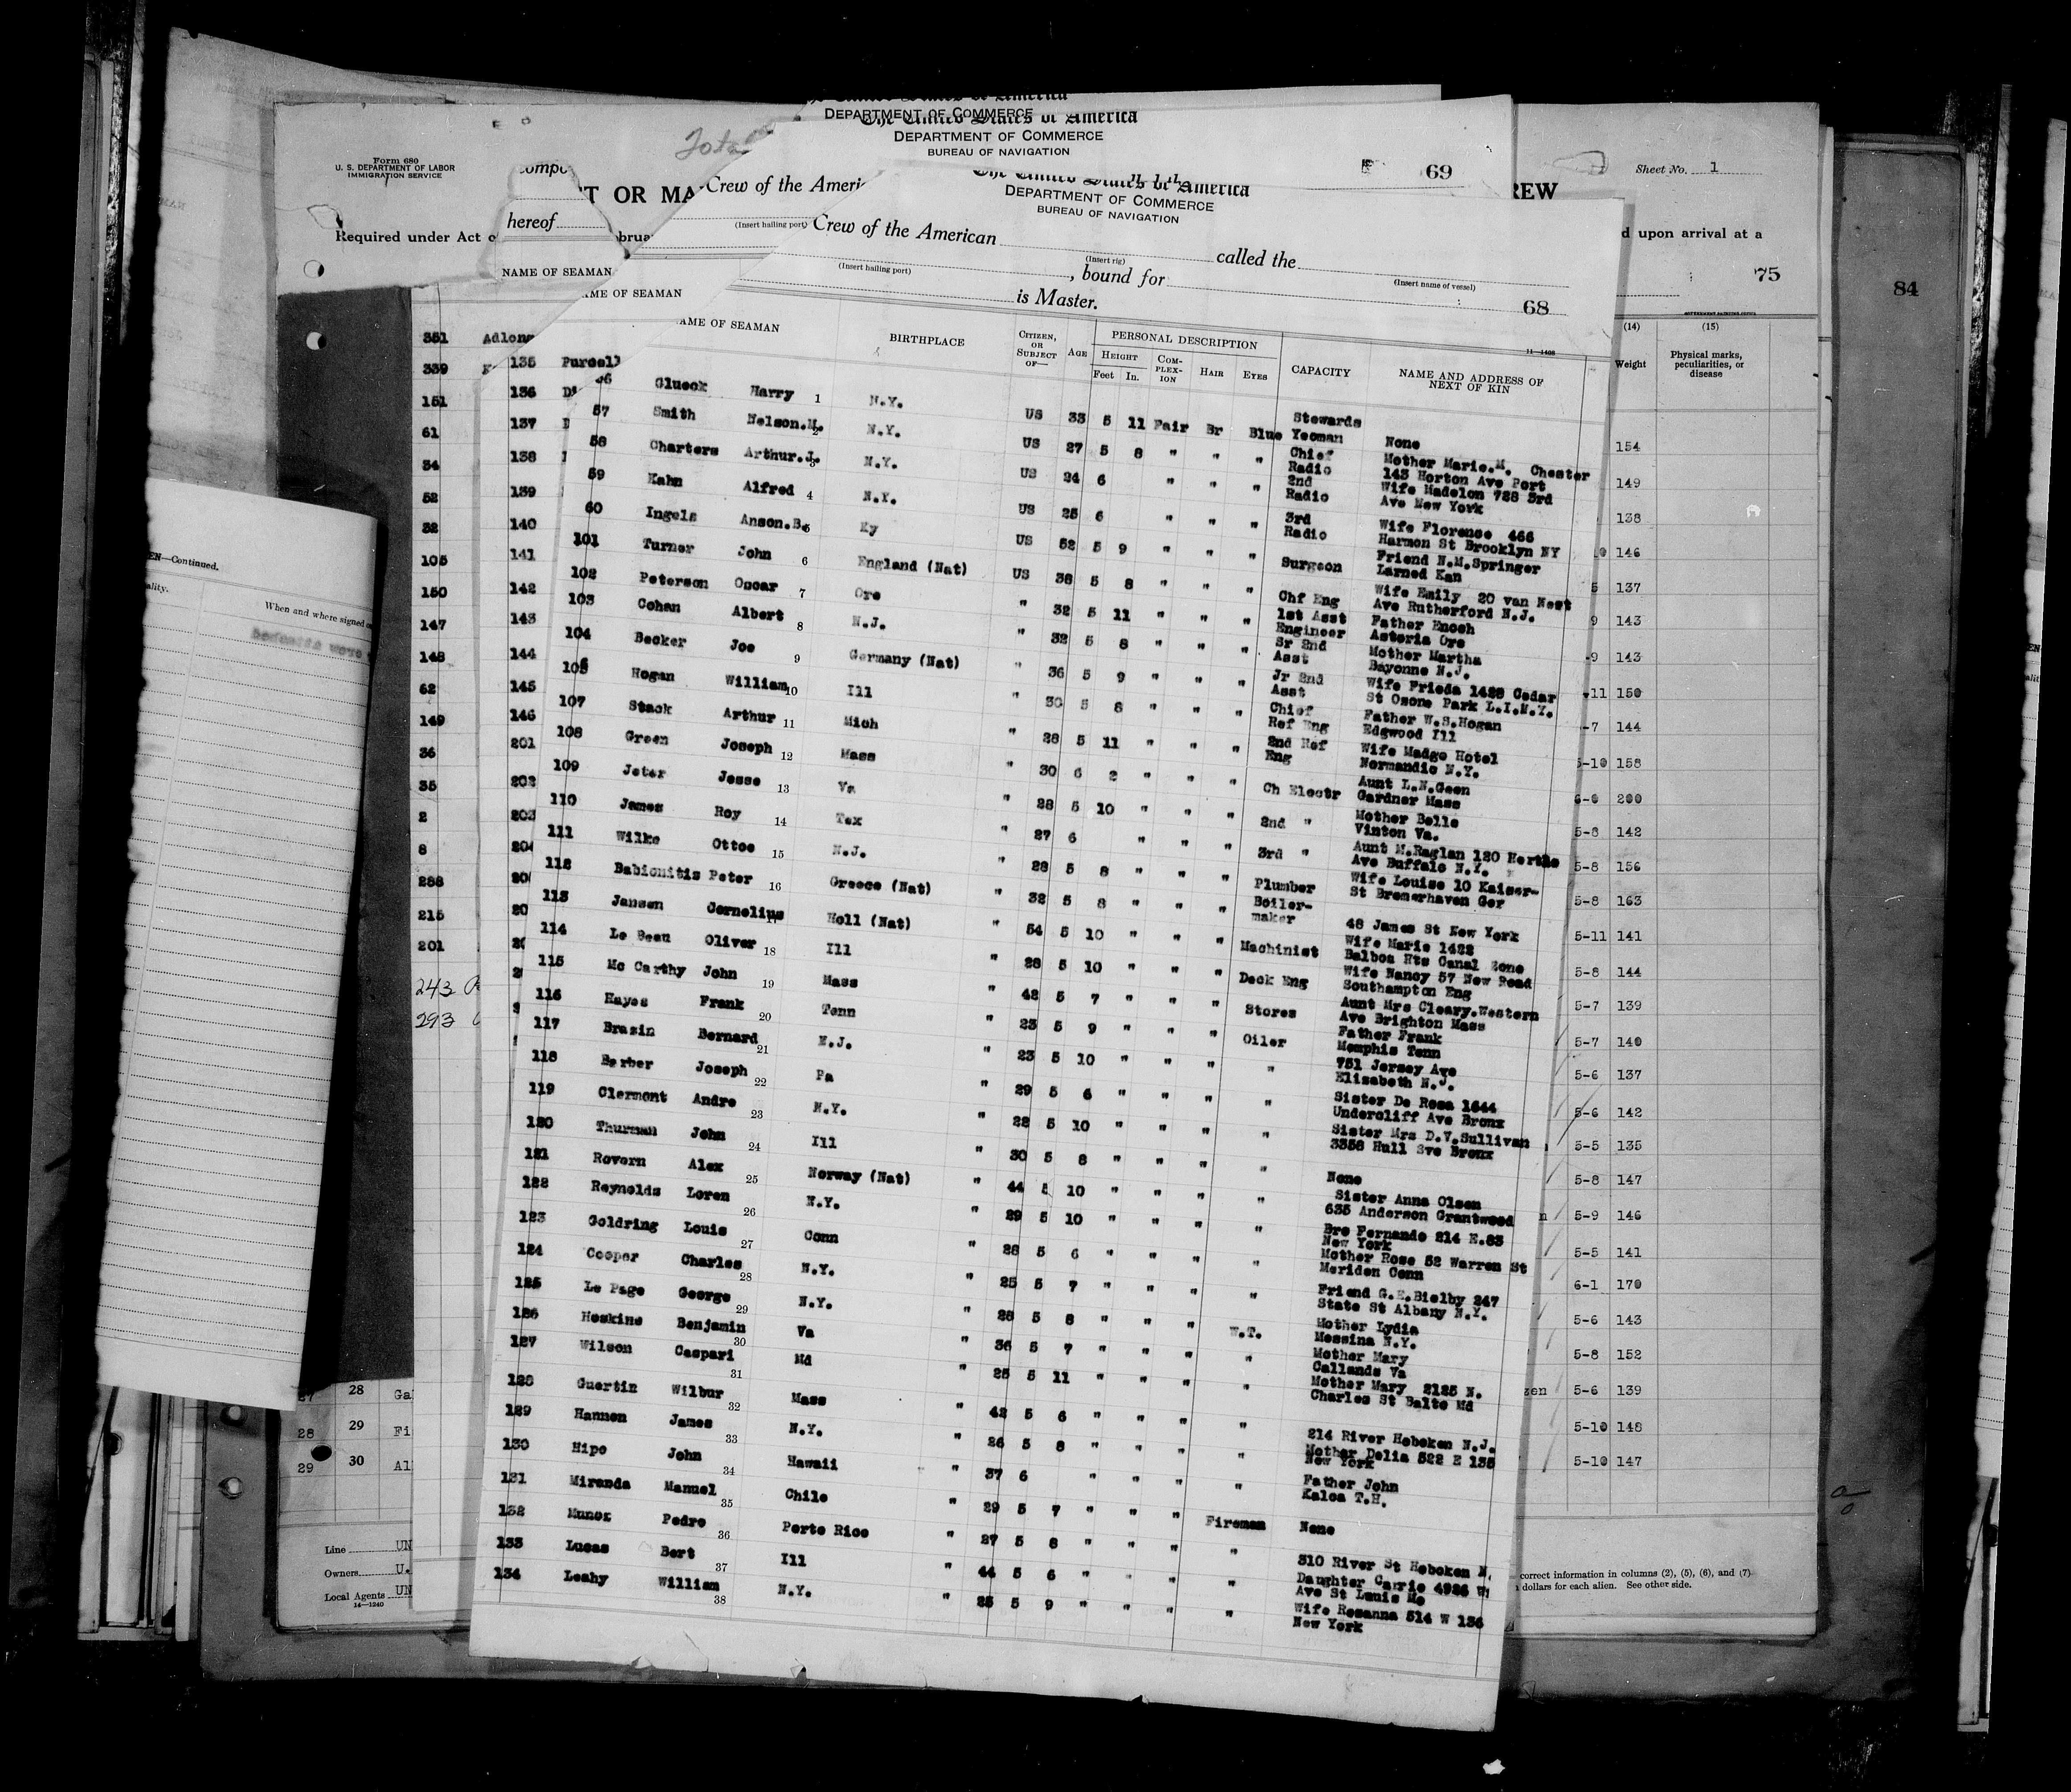 The United States of America
DEPARTMENT OF COMMERCE
The United States of America
DEPARTMENT OF COMMERCE
BUREAU OF NAVIGATION
69
Form 680
U. S. DEPARTMENT OF LABOR
IMMIGRATION SERVICE
Sheet No. 1
T OR MA
REW
Crew of the Ameri
(Insert hailing port)
hereof
Required under Act o
brua
d upon arrival at a
75
84
NAME OF SEAMAN
ME OF SEAMAN
The United States of America
DEPARTMENT OF COMMERCE
BUREAU OF NAVIGATION
Crew of the American called the
(Insert rig) (Insert name of vessel)
(Insert hailing port) , bound for
is Master. 68
11—1408
AME OF SEAMAN BIRTHPLACE CITIZEN, OR SUBJECT OF— AGE PERSONAL DESCRIPTION CAPACITY NAME AND ADDRESS OF NEXT OF KIN
HEIGHT COMPLEXION HAIR EYES
Feet In.
Glueck Harry 1 N.Y. US 33 5 11 Fair Br Blue Stewards Yeoman None
57 Smith Nelson.M. 2 N.Y. US 27 5 8 " " " Chief Radio Mother Marie.M. Chester 143 Horton Ave Port
58 Charters Arthur.J. 3 N.Y. US 24 6 " " " 2nd Radio Wife Madelon 728 3rd Ave New York
59 Kahn Alfred 4 N.Y. US 25 6 " " " 3rd Radio Wife Florence 466 Harmon St Brooklyn NY
60 Ingels Anson.B. 5 Ky US 52 5 9 " " " Surgeon Friend N.M.Springer Larned Kan
101 Turner John 6 England (Nat) US 38 5 8 " " " Chf Eng Wife Emily 20 van Nest Ave Rutherford N.J.
102 Peterson Oscar 7 Ore " 32 5 11 " " " 1st Asst Engineer Father Enoch Astoria Ore
103 Cohan Albert 8 N.J. " 32 5 8 " " " Sr 2nd Asst Mother Martha Bayonne N.J.
104 Becker Joe 9 Germany (Nat) " 36 5 9 " " " Jr 2nd Asst Wife Frieda 1428 Cedar St Ozone Park L.I.N.Y.
105 Hogan William 10 Ill " 30 5 8 " " " Chief Ref Eng Father W.S.Hogan Edgwood Ill
107 Stack Arthur 11 Mich " 28 5 11 " " " 2nd Ref Eng Wife Madge Hotel Normandie N.Y.
108 Green Joseph 12 Mass " 30 6 2 " " " Ch Electr Aunt L.N.Geen Gardner Mass
109 Jeter Jesse 13 Va " 28 5 10 " " " 2nd " Mother Belle Vinton Va.
110 James Roy 14 Tex " 27 6 " " " 3rd " Aunt M.Raglan 120 Hertle Ave Buffalo N.Y.
111 Wilke Ottoe 15 N.J. " 28 5 8 " " " Plumber Wife Louise 10 Kaiser- St Bremerhaven Ger
112 Babionitis Peter 16 Greece (Nat) " 32 5 8 " " " Boiler-maker 48 James St New York
113 Jansen Cornelius 17 Holl (Nat) " 54 5 10 " " " Machinist Wife Marie 1422 Balboa Hts Canal Zone
114 Le Beau Oliver 18 Ill " 28 5 10 " " " Deck Eng Wife Nancy 57 New Road Southampton Eng
115 Mc Carthy John 19 Mass " 42 5 7 " " " Stores Aunt Mrs Cleary.Western Ave Brighton Mass
116 Hayes Frank 20 Tenn " 23 5 9 " " " Oiler Father Frank Memphis Tenn
117 Brazin Bernard 21 N.J. " 23 5 10 " " " " 751 Jersey Ave Elizabeth N.J.
118 Berber Joseph 22 Pa " 29 5 6 " " " " Sister De Rosa 1644 Undercliff Ave Bronx
119 Clermont Andre 23 N.Y. " 28 5 10 " " " " Sister Mrs D.V.Sullivan 3358 Hull Sve Bronx
120 Thurman John 24 Ill " 30 5 8 " " " " None
121 Rovorn Alex 25 Norway (Nat) " 44 5 10 " " " " Sister Anna Olsen 635 Anderson Grantwood
122 Reynolds Loren 26 N.Y. " 29 5 10 " " " " Bro Fernando 214 E.83 New York
123 Goldring Louis 27 Conn " 28 5 6 " " " " Mother Rose 52 Warren St Meriden Conn
124 Cooper Charles 28 N.Y. " 25 5 7 " " " " Friend G.E.Bielby 247 State St Albany N.Y.
125 Le Page George 29 N.Y. " 28 5 8 " " " W.T. Mother Lydia Messina N.Y.
126 Hoskins Benjamin 30 Va " 36 5 7 " " " " Mother Mary Callands Va
127 Wilson Caspari 31 Md " 25 5 11 " " " " Mother Mary 2125 N. Charles St Balto Md
128 Guertin Wilbur 32 Mass " 42 5 6 " " " " 214 River Hoboken N.J.
129 Hannon James 33 N.Y. " 26 5 8 " " " " Mother Delia 522 E 135 New York
130 Hipo John 34 Hawaii " 37 6 " " " " Father John Kaloa T.H.
131 Miranda Manuel 35 Chile " 29 5 7 " " " Fireman None
132 Munoz Pedro 36 Porto Rico " 27 5 8 " " " " 310 River St Hoboken N.
133 Lucas Bert 37 Ill " 44 5 6 " " " " Daughter Carrie 4926 W Ave St Louis Mo
134 Leahy William 38 N.Y. " 25 5 9 " " " " Wife Rosanna 514 W 136 New York
351 Adlong
339
151
61
34
52
32
105
150
147
148
62
149
36
35
2
8
288
215
201
243
293
135 Purcell
136
137
138
139
140
141
142
143
144
145
146
201
202
203
(14) (15)
Weight Physical marks, peculiarities, or disease
154
149
138
146
137
9 143
-9 143
11 150
-7 144
5-10 158
6-0 200
5-8 142
5-8 156
5-8 163
5-11 141
5-8 144
5-7 139
5-7 140
5-6 137
5-6 142
5-5 135
5-8 147
5-9 146
5-5 141
6-1 170
5-6 143
5-8 152
zen 5-6 139
5-10 148
5-10 147
EN—Continued.
ality.
When and where signed
27 28 Ga
28 29 Fi
29 30 Al
Line UN
Owners U.
Local Agents UN
14—1240
correct information in columns (2), (5), (6), and (7)
dollars for each alien. See other side.